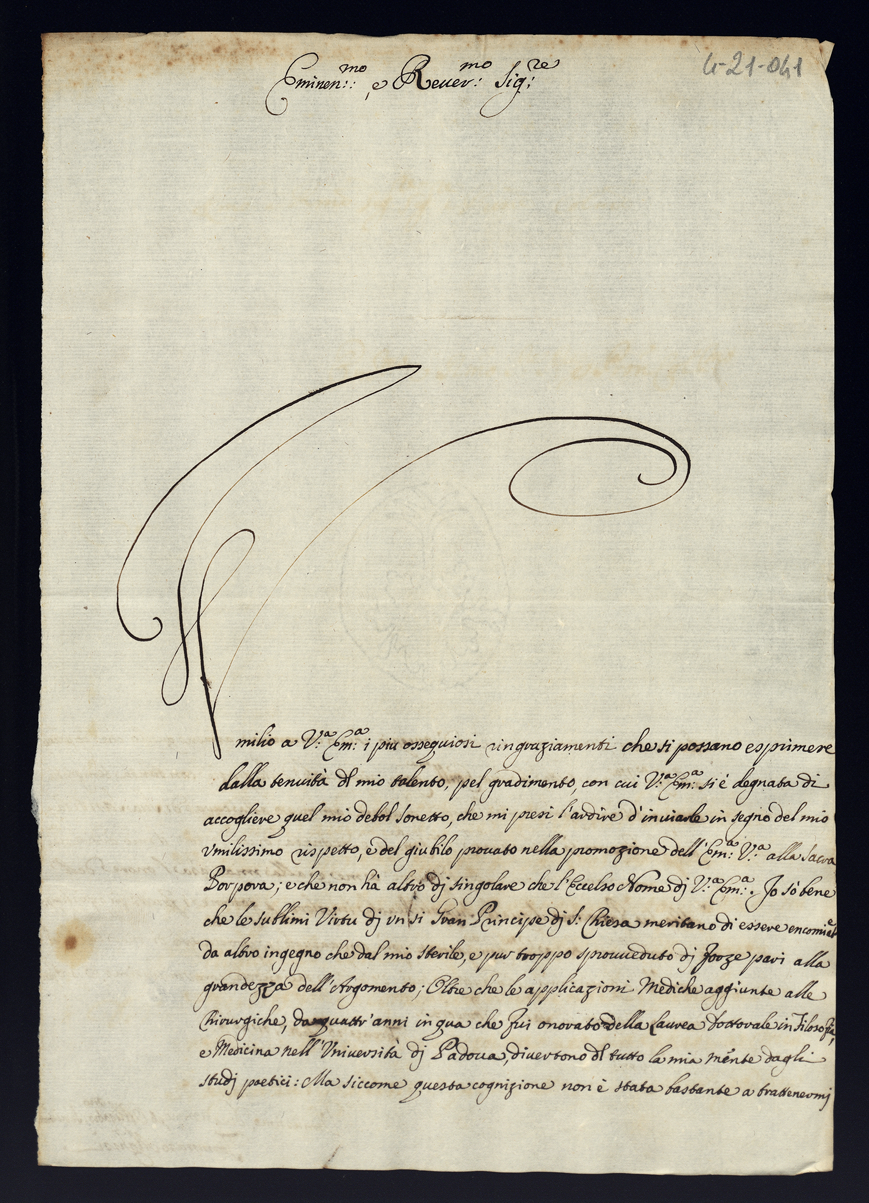 4-21-041
Eminen:mo e Reuer:mo Sig:re
milio a V:a Em:a i piu ossequiosi ringraziamenti che si possano esprimere
dalla tenuità dl mio talento, pel gradimento, con cui V:a Em:a si è degnata di
accogliere quel mio debol sonetto, che mi presi l'ardire d'inviarle in segno del mio
vmilissimo rispetto, e del giubilo prouato nella promozione dell'Em:a V:a alla Sacra
Porpora; e che non hà altro dj singolare che l'Eccelso Nome dj V:a Em:a. Jo sò bene
che le sublimi Virtu dj vn si Gran Principe dj S: Chiesa meritano di essere encomiat
da altro ingegno che dal mio sterile, e pur troppo sproueduto dj forze pari alla
grandezza dell'Argomento; Oltre che le applicazioni Mediche aggiunte alle
Chirurgiche, da quattr'anni in qua che fui onorato della Laurea Dottorale in Filosofia,
e Medicina nell'Vniuersità dj Padoua, diuertono dl tutto la mia mente dagli
studj poetici: Ma siccome questa cognizione non è stata bastante a trattenermj